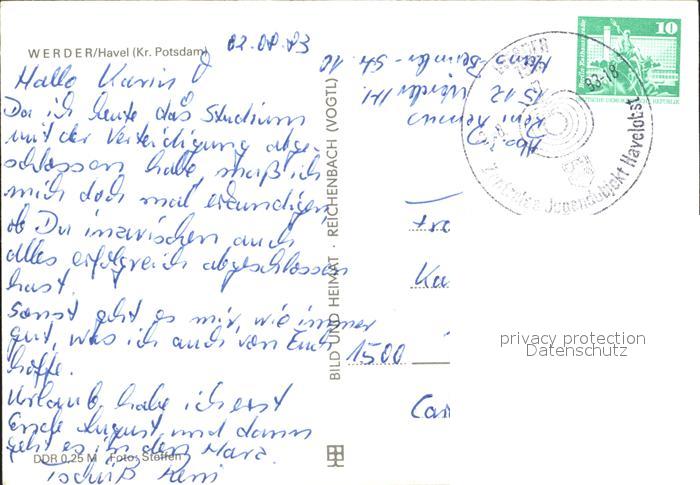 WERDER/Havel (Kr. Potsdam)
02.08.83
Hallo Karin!
Da ich heute das Studium
mit der Verteidigung abge-
schlossen habe, muß ich
mich doch mal erkundigen
ob Du inzwischen auch
alles erfolgreich abgeschlossen
hast.
Sonst geht es mir, wie immer
gut, was ich auch von Euch
hoffe.
Urlaub habe ich erst
Ende August und dann
geht es in den Harz.
Tschüß Reni
DDR 0,25 M Foto: Steffen
BILD UND HEIMAT · REICHENBACH (VOGTL)
Abs.:
Reni
1512 Werder/H.
10
Fra
Ka
1500
Berlin Rathausstraße
10
DEUTSCHE DEMOKRATISCHE REPUBLIK
Zentrales Jugendobjekt Havelobst
privacy protection
Datenschutz